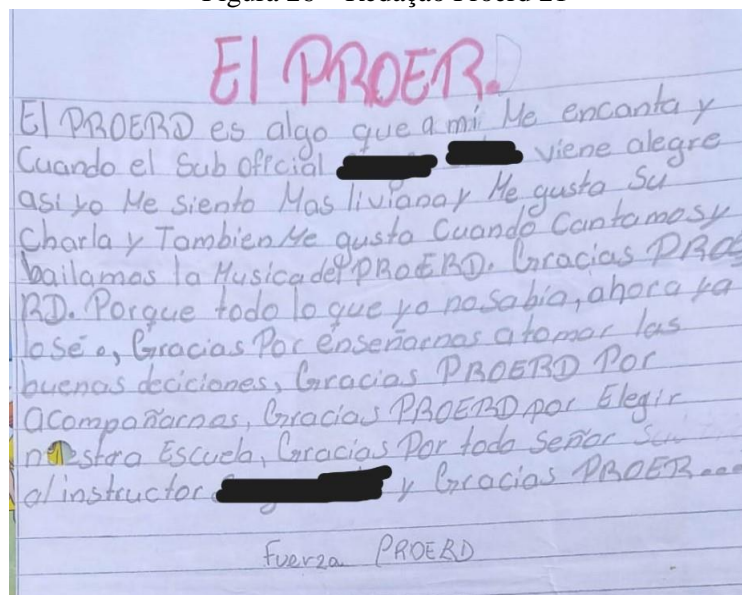 El PROER.D
El PROERD es algo que a mi Me encanta y
Cuando el Sub official viene alegre
asi yo Me siento Mas liviana y Me gusta Su
Charla y Tambien Me gusta Cuando Cantamos y
bailamos la Musica del PROERD. Gracias PROE
RD. Porque todo lo que yo no sabia, ahora ya
lo sé o, Gracias Por enseñarnos a tomar las
buenas deciciones, Gracias PROERD Por
acompañarnos, Gracias PROERD por Elegir
nuestra Escuela, Gracias Por todo Señor
al instructor y Gracias PROER...
Fuerza PROERD